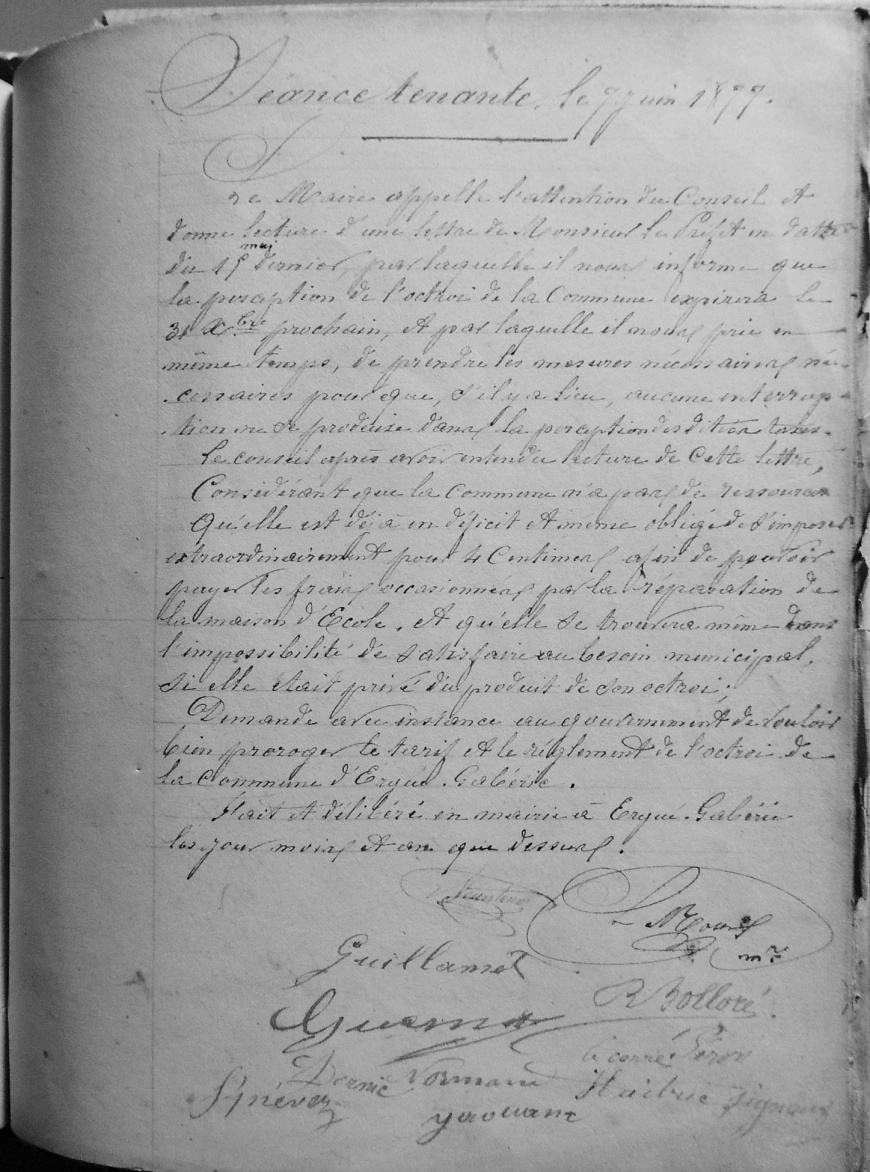 Séance tenante, le 7 juin 1877.
Le Maire appelle l'attention du Conseil et
donne lecture d'une lettre de Monsieur le Préfet en date
mai
du 15 dernier, par laquelle il nous informe que
la perception de l'octroi de la Commune expirera le
31 Xbre prochain, et par laquelle il nous prie en
même temps, de prendre les mesures nécessaires né-
cessaires pour que, s'il y a lieu, aucune interrup-
tion ne se produise dans la perception desdites taxes.
Le conseil après avoir entendu lecture de cette lettre,
Considérant que la commune n'a pas de ressources
Qu'elle est déjà en déficit et même obligé de s'imposer
extraordinairement pour 4 centimes afin de pouvoir
payer les frais occasionnés par la réparation de
la maison d'École. Et qu'elle se trouvera même dans
l'impossibilité de satisfaire au besoin municipal,
si elle était privé du produit de son octroi;
Demande avec instance au gouvernement de vouloir
bien proroger le tarif et le règlement de l'octroi de
la Commune d'Ergué-Gabéric.
Fait et délibéré en mairie à Ergué-Gabéric
les jour mois et an que dessus.
Guillamet
R Bolloré